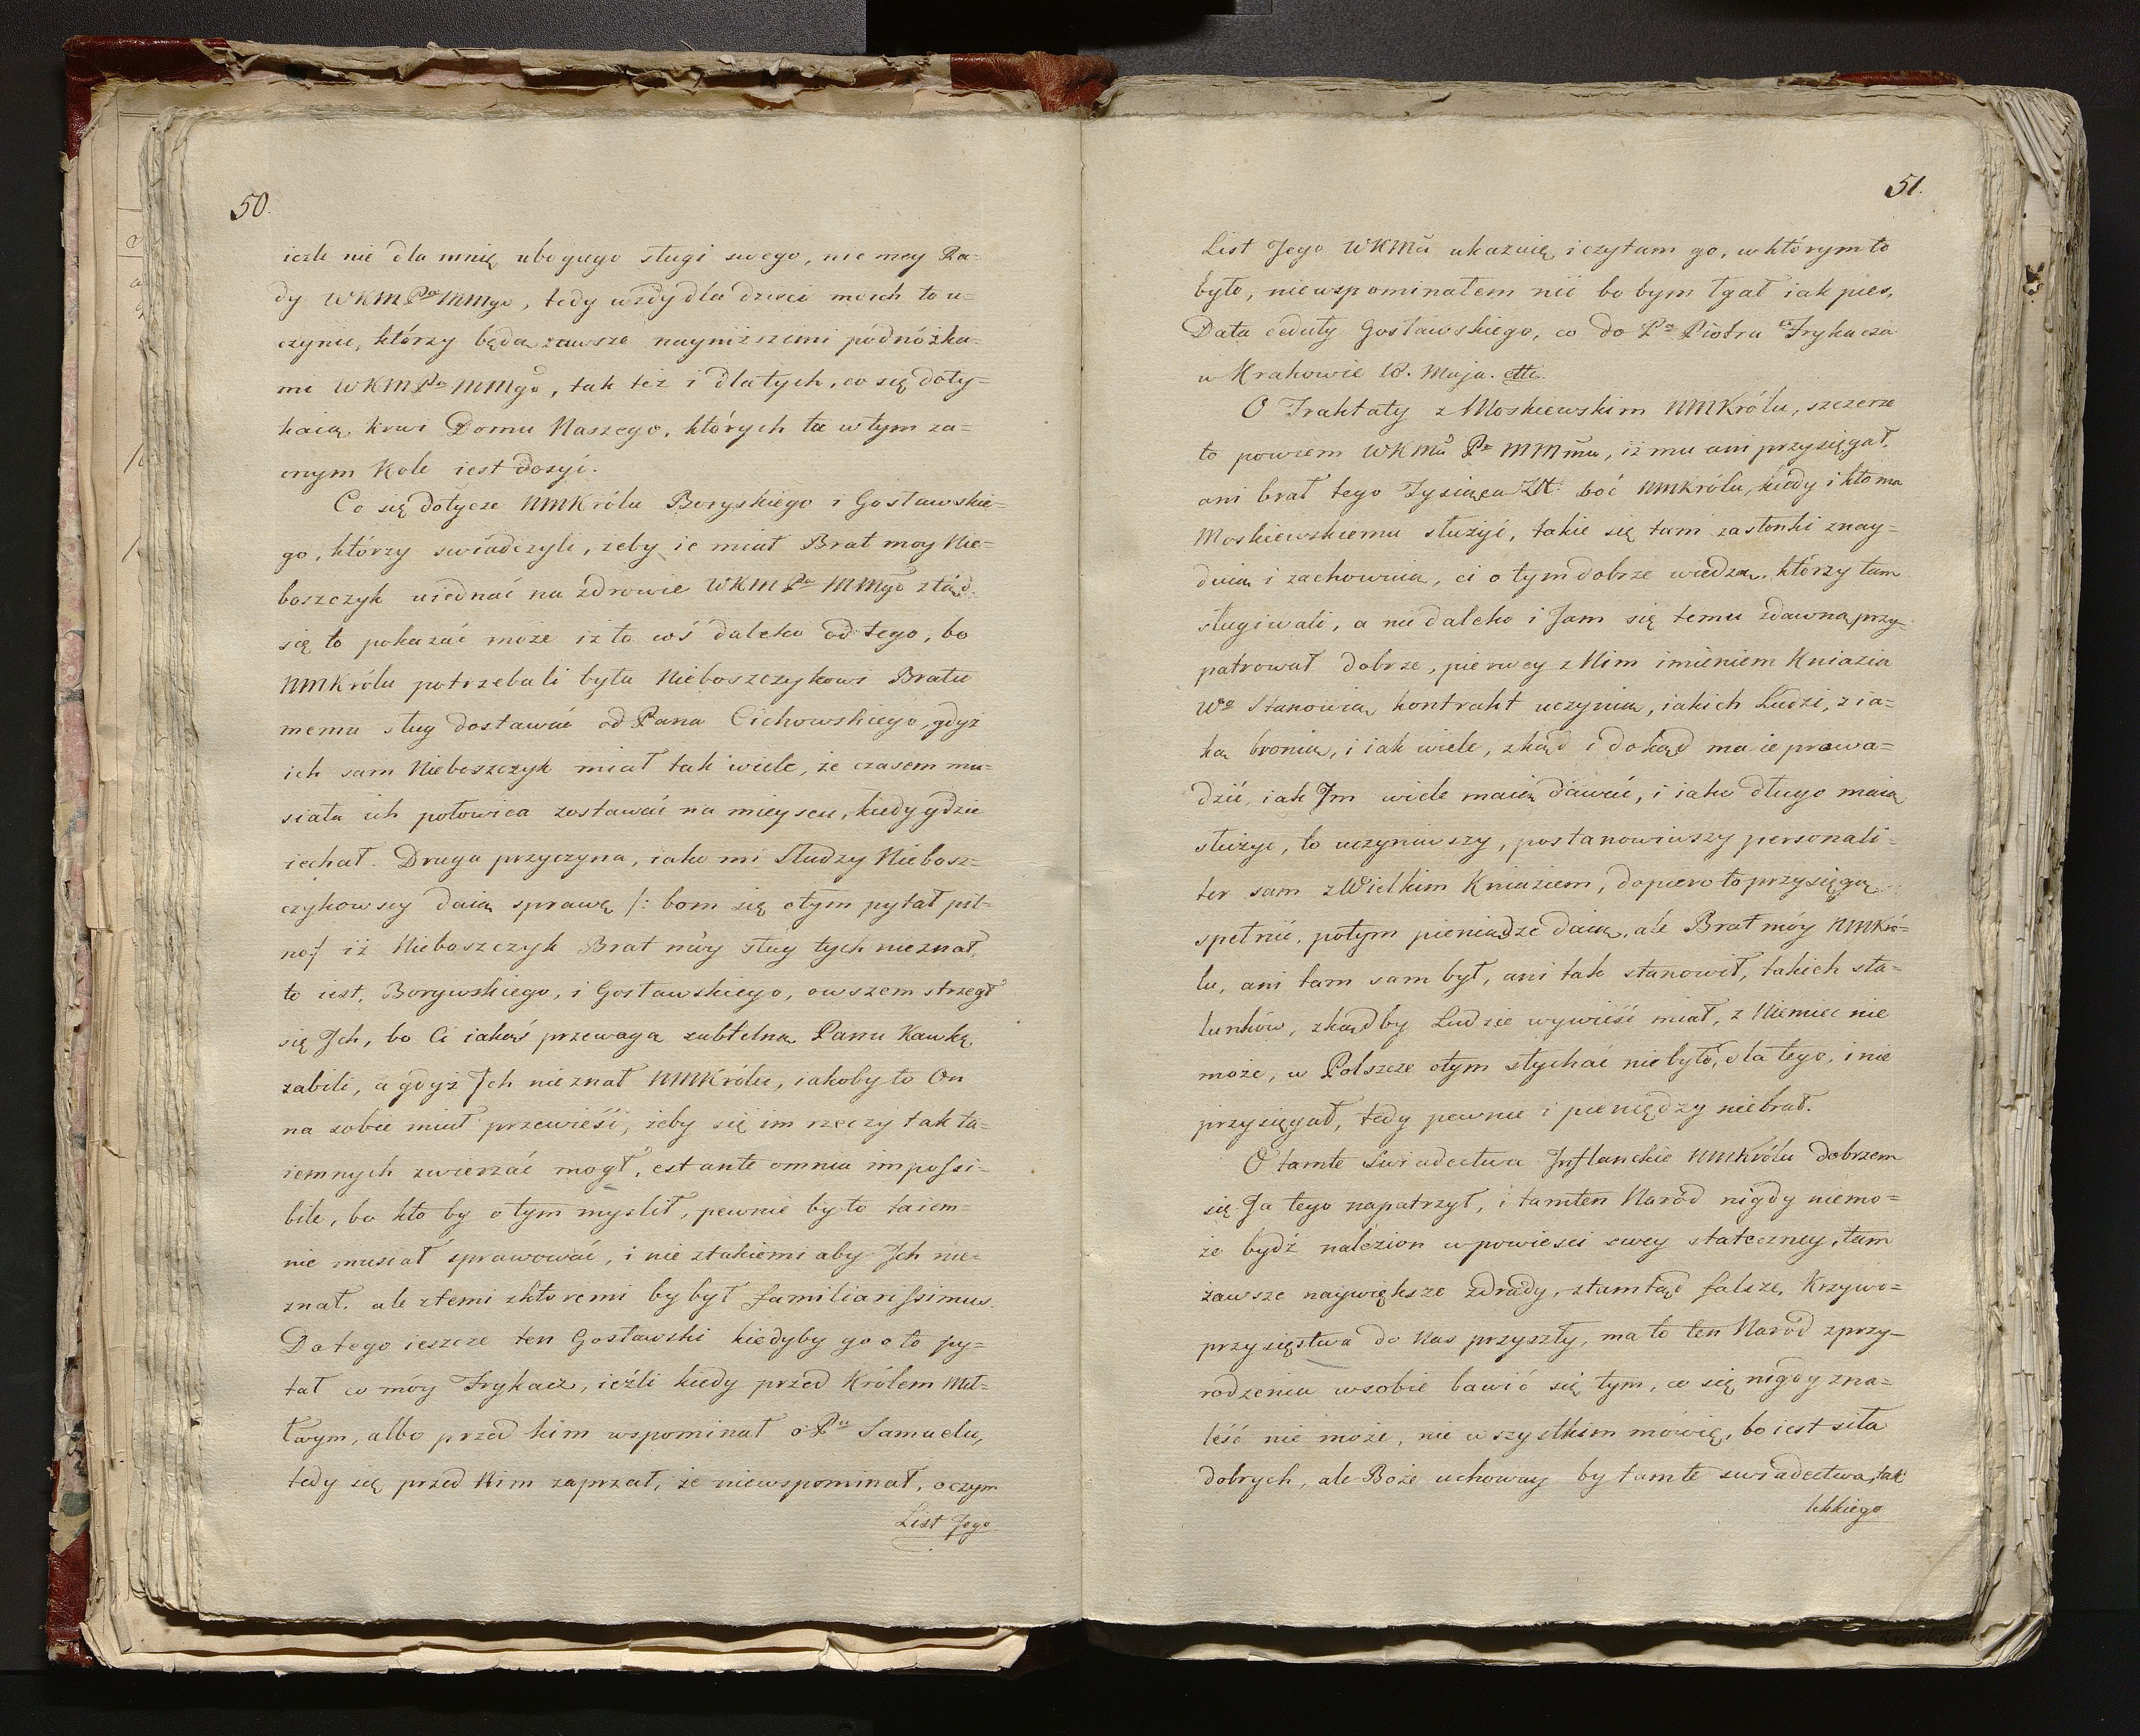 50.
iezli nie dla mnię ubogugo sługi swego, nie mey Ra=
dy WKM Pa MMgo, tedy wżdy dla dzieci moich to u=
czynić, którzy będą zawsze nayniższemi podnóżka=
mi WKM Pa MMgo, tak też i dla tych, co się doty=
kaią krwi Domu Naszego, których tu w tym za=
cnym Kole iest dosyć.
Co się dotycze NMKrólu Boryskiego i Gosławskie=
go, którzy swiadczyli, żeby ie miał Brat moy Nie=
boszczyk uiednać na zdrowie WKM Pa MMgo ztąd
się to pokazać może iż to coś daleko od tego, bo
NMKrólu potrzebali była Nieboszczykowi Bratu
memu sług dostawać od Pana Cichowskiego, gdyż
ich sam Nieboszczyk miał tak wiele, że czasem mu=
siała ich połowica zostawać na mieyscu, kiedy gdzie
iechał. Druga przyczyna, iako mi Słudzy Niebosz=
czykowscy daią sprawę /: bom się otym pytał pil=
no :/ iż Nieboszczyk Brat móy sług tych nieznał,
to iest, Borywskiego, i Gosławskiego, owszem strzegł
się Jch, bo Ci iakąś przewagą subtelną Panu Kawkę
zabili, a gdyż Jch nieznał NMKrólu, iakoby to On
na sobie miał przewieść, żeby się im rzeczy tak ta=
iemnych zwierzać mogł, est ante omnia impossi=
bile, bo kto by o tym myslił, pewnie by to taiem=
nie musiał sprawować, i nie ztakiemi aby Jch nie=
znał. ale ztemi zktoremi by był familiarissimus.
Do tego ieszcze ten Gosławski kiedyby go o to py=
tał co móy Trykacz, ieźli kiedy przed Królem Mił=
łwym, albo przed kim wspominał o Pu Samuelu,
tedy się przed Nim zaprzał, że niewspominał, oczym
List Jego
51.
List Jego WKMu ukazuię i czytam go, w którym to
było, niewspominałem nić bo bym łgał iak pies,
Data ceduły Gosławskiego, co do Pa Piotra Trykacza
w Krakowie 18. Maja.
O Traktaty z Moskiewskim NMKrólu, szczerze
to powiem WKMu Pu MMmu, iż mu ani przysięgał,
ani brał tego Tysiąca Zł: boć NMKrólu, kiedy i kto ma
Moskiewskiemu służyć, takie się tam zastonki znay=
duią i zachowuią, ci o tym dobrze wiedzą, którzy tam
sługiwali, a nie daleko i Jam się temu zdawna przy=
patrował dobrze, pierwey z Nim imieniem Kniazia
Wo Stanowią kontrakt uczynią, iakich Ludzi, z ia=
ką bronią, i iak wiele, zkąd i dokąd ma ie prowa=
dzić, iak Jm wiele maią dawać, i iako długo maią
służyć, to uczyniwszy, postanowiwszy personali=
ter sam z Wielkim Kniaziem, dopiero to przysięgą
spełnić, potym pieniądze daią, ale Brat móy NMKró=
lu, ani tam sam był, ani tak stanowił, takich sta=
lunków, zkądby Ludzie wywieść miał, z Niemiec nie
może, w Polszcze otym słychać nie było, dla tego, i nie
przysięgał, tedy pewnie i pieniędzy niebrał.
O tamte Swiadectwa Jnflanckie NMKrólu dobrzem
się Ja tego napatrzył, i tamten Naród nigdy niemo=
że bydź nalezion w powiesci swey stateczney, tam
zawsze naywiększe zdrady, ztamtąd falsze, Krzywo=
przysięstwa do Nas przyszły, ma to ten Naród zprzy=
rodzenia w sobie bawić się tym, co się nigdy zna=
leść nie może, nie w szystkim mówię, bo iest siła
dobrych, ale Boże uchoway by tamte swiadectwa, tak
lekkiego